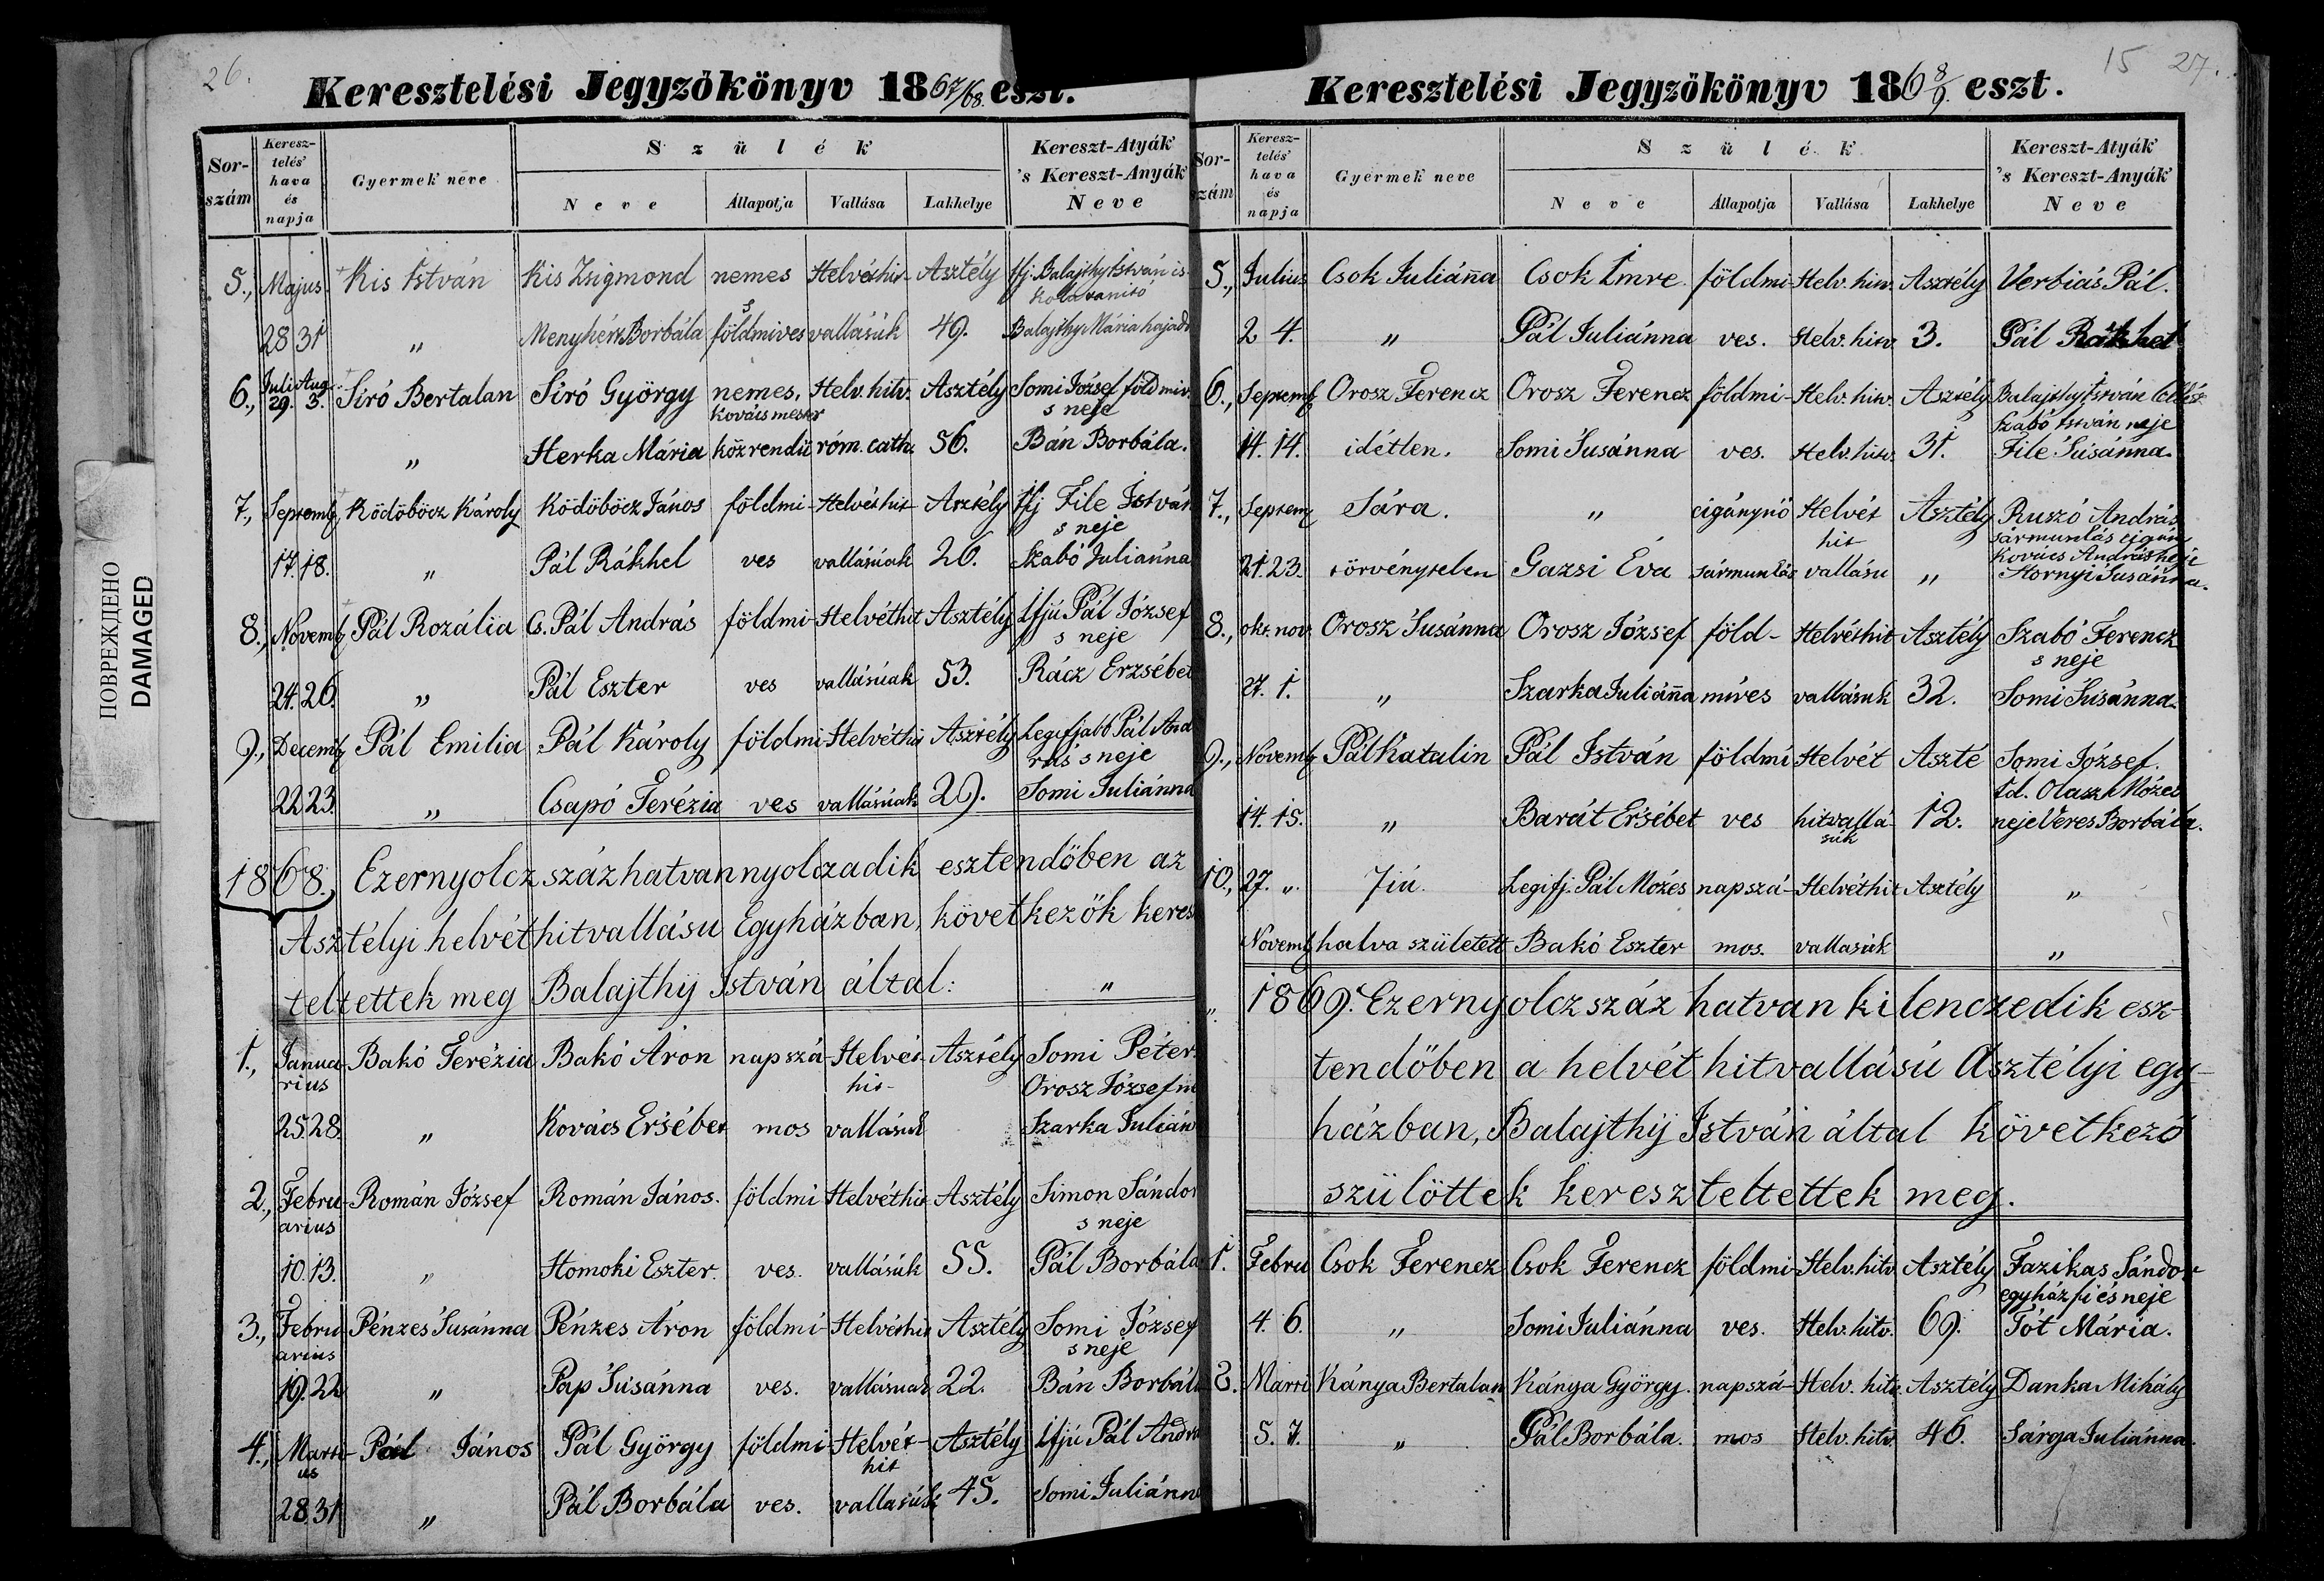 26.
Keresztelési Jegyzökönyv 1867/68. eszt.
Sor-szám
Keresz-telés' hava és napja
Gyermek neve
Szülék
Neve
Állapotja
Vallása
Lakhelye
Kereszt-Atyák 's Kereszt-Anyák Neve
5., Majus Kis István Kis Zsigmond nemes Helvéthit- Asztély Ifj. Balajthy István is-
s kolatanitó
28 31 „ Menyhért Borbála földmives vallásúk 49. Balajthy Mária hajad
6., Juli Aug. Siró Bertalan Siró György nemes, Helv. hitv. Asztély Somi József földmiv.
29. 3. kovács mester s neje
„ Herka Mária közrendü róm. cath. 56. Bán Borbála.
7., Septemb Ködöböcz Károly Ködöböcz János földmi- Helvéthit- Asztély Ifj File István
s neje
17. 18. „ Pál Rákhel ves vallásúak 26. Szabó Juliánna
8., Novemb Pál Rozália Cs. Pál András földmi- Helvéthit Asztély Ifjú Pál József
s neje
24. 26. „ Pál Eszter ves vallásúak 53. Rácz Erzsébet
9., Decemb Pál Emilia Pál Károly földmi- Helvéthit Asztély Legifjabb Pál And
rás s neje
22 23. „ Csapó Terézia ves vallásúak 29. Somi Juliánna
1868. Ezernyolcz száz hatvannyolczadik esztendöben az
Asztélyi helvét hitvallásu Egyházban, következök keresz
teltettek meg Balajthÿ István által: „
1., Janua- Bakó Terézia Bakó Áron napszá- Helvét- Asztély Somi Péter.
rius hit- Orosz József n
25. 28. „ Kovács Ersébet mos vallásuk Szarka Julián
2., Febru- Román József Román János. földmi Helvéthit Asztély Simon Sándor
arius s neje
10. 13. „ Homoki Eszter. ves. vallásúk 55. Pál Borbála
3., Febru- Pénzes Susánna Pénzes Áron földmi- Helvéthit Asztély Somi József
arius s neje
19. 22 „ Pap Susánna ves. vallásuak 22. Bán Borbál
4., Marti- Pál János Pál György földmi- Helvét- Asztély Ifjú Pál Andrá
us hit
28. 31 „ Pál Borbála ves. vallasúk 45. Somi Juliánn
15 27.
Keresztelési Jegyzökönyv 1868/9. eszt.
Sor-szám
Keresz-telés' hava és napja
Gyermek neve
Szülék
Neve
Állapotja
Vallása
Lakhelye
Kereszt-Atyák 's Kereszt-Anyák Neve
5., Julius Csok Juliánna Csok Imre. földmi- Helv. hitv. Asztély Verbiás Pál.
2 4. „ Pál Juliánna ves. Helv. hitv. 3. Pál Rákhel
6., Septemb Orosz Ferencz Orosz Ferencz földmi- Helv. hitv. Asztély Balajthy István
Szabó István neje
14. 14. idétlen. Somi Susánna ves. Helv. hitv. 31. File Susánna.
7., Septem Sára. „ cigánynö Helvét Asztély Ruszó András
hit sármunkás cigán
Kovács András neje
21. 23. törvénytelen Gazsi Éva sármunkás vallásu „ Hornyi Susánna.
8., okt. nov. Orosz Susánna Orosz József föld- Helvéthit Asztély Szabó Ferencz
s neje
27. 1. „ Szarka Juliánna míves vallásuk 32. Somi Susánna.
9., Novemb Pál Katalin Pál István földmi Helvét Aszté Somi József.
Id. Olasz Mózes
14. 15. „ Barát Ersébet ves hitvallá- 12. neje Veres Borbála.
súk
10., 27. „. Fiú. Legifj. Pál Mózes napszá- Helvéthit Asztély „
Novemb halva született Bakó Eszter mos. vallasúk „
„. 1869. Ezernyolcz száz hatvan kilenczedik esz-
tendöben a helvét hitvallású Asztélyi egy-
házban, Balajthÿ István által következö
szülöttek kereszteltettek meg.
1. Febru Csok Ferencz Csok Ferencz földmi- Helv. hitv Asztély Fazikas Sándor
egyházfi és neje
4. 6. „ Somi Juliánna ves. Helv. hitv. 69. Tót Mária.
2. Marti Kánya Bertalan Kánya György. napszá- Helv. hitv. Asztély Danka Mihály
5. 7. „ Pál Borbála. mos Helv. hitv. 46. Sárga Juliánna.
ПОВРЕЖДЕНО
DAMAGED